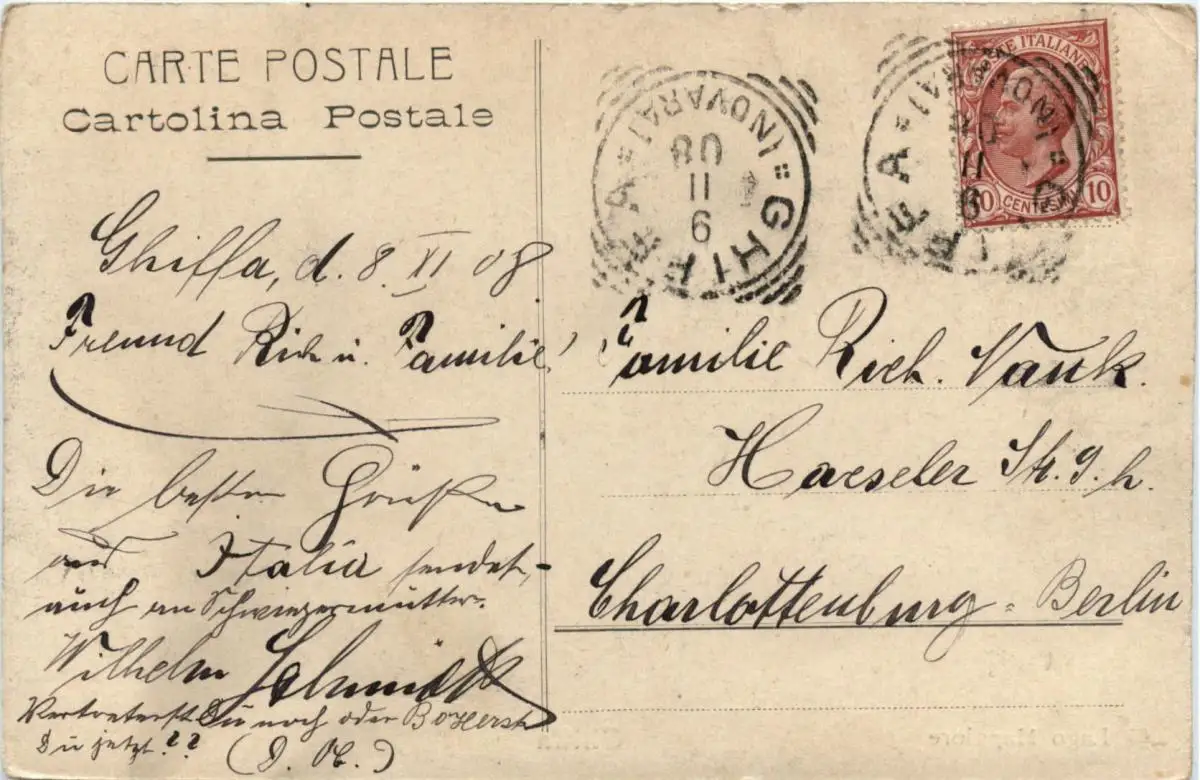 CARTE POSTALE
Cartolina Postale
Ghiffa, d. 8. XI 08
Freund Rich u. Familie!
Die besten Grüße
aus Italia sendet,
auch an Schwiegermutter.
Wilhelm Schmidt
Du noch oder
Du jetzt??
GHIFFA
(NOVARA)
9
11
08
GHIFFA
(NOVARA)
9
11
POSTE ITALIANE
10 CENTESIMI 10
Familie Rich. Nauk.
Haeseler Str. 9. h.
Charlottenburg-Berlin
Lago Maggiore